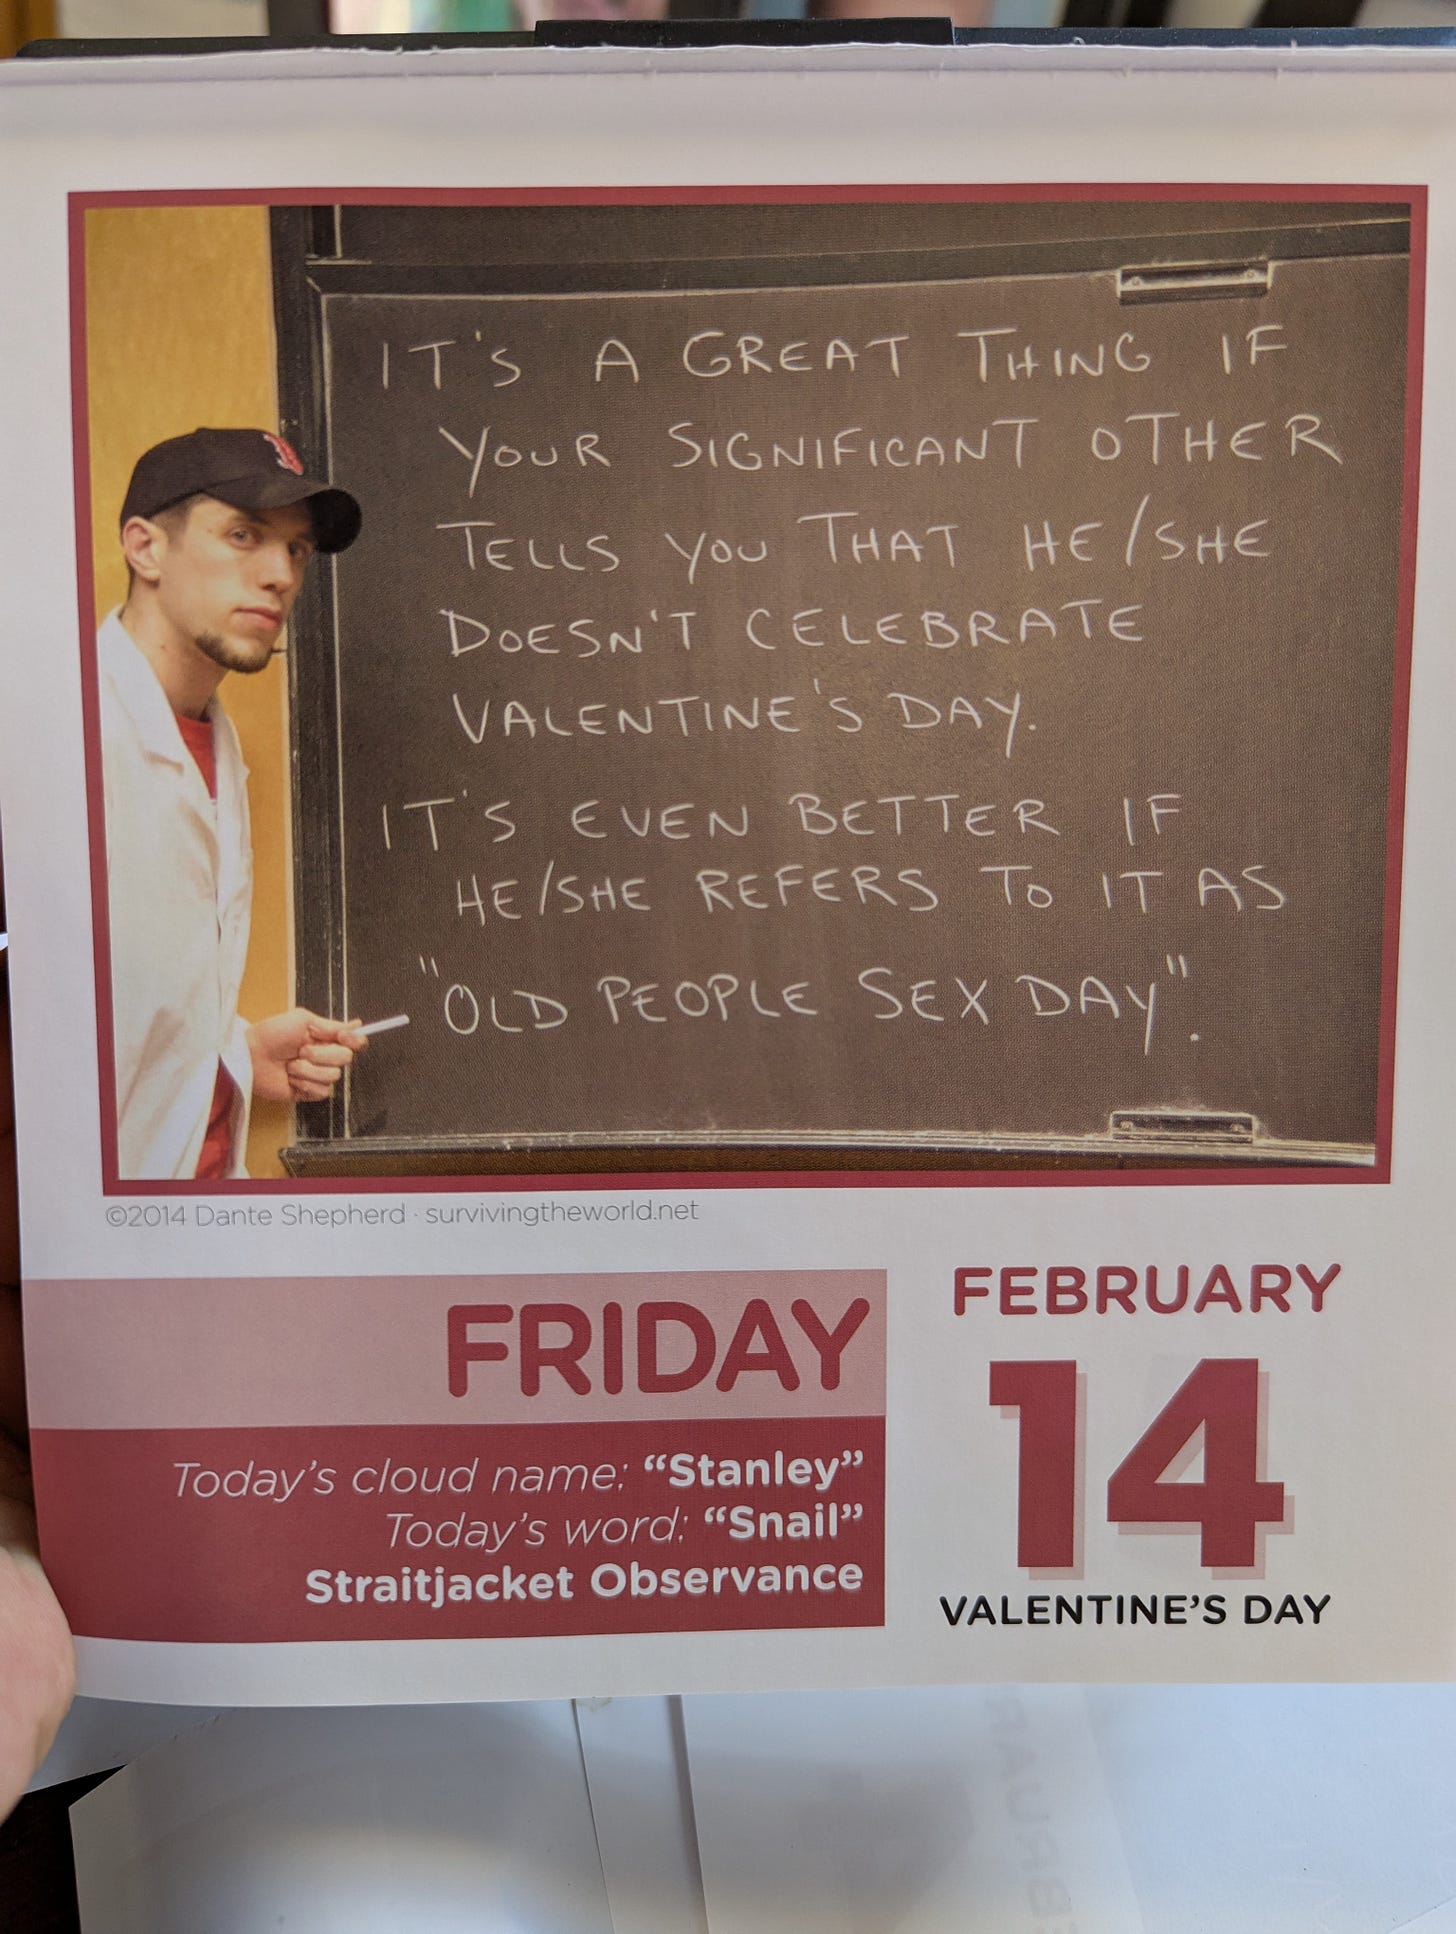 IT'S A GREAT THING IF
YOUR SIGNIFICANT OTHER
TELLS YOU THAT HE/SHE
DOESN'T CELEBRATE
VALENTINE'S DAY.
IT'S EVEN BETTER IF
HE/SHE REFERS TO IT AS
"OLD PEOPLE SEX DAY".
©2014 Dante Shepherd · survivingtheworld.net
FRIDAY
Today's cloud name: “Stanley”
Today's word: “Snail”
Straitjacket Observance
FEBRUARY
14
VALENTINE'S DAY